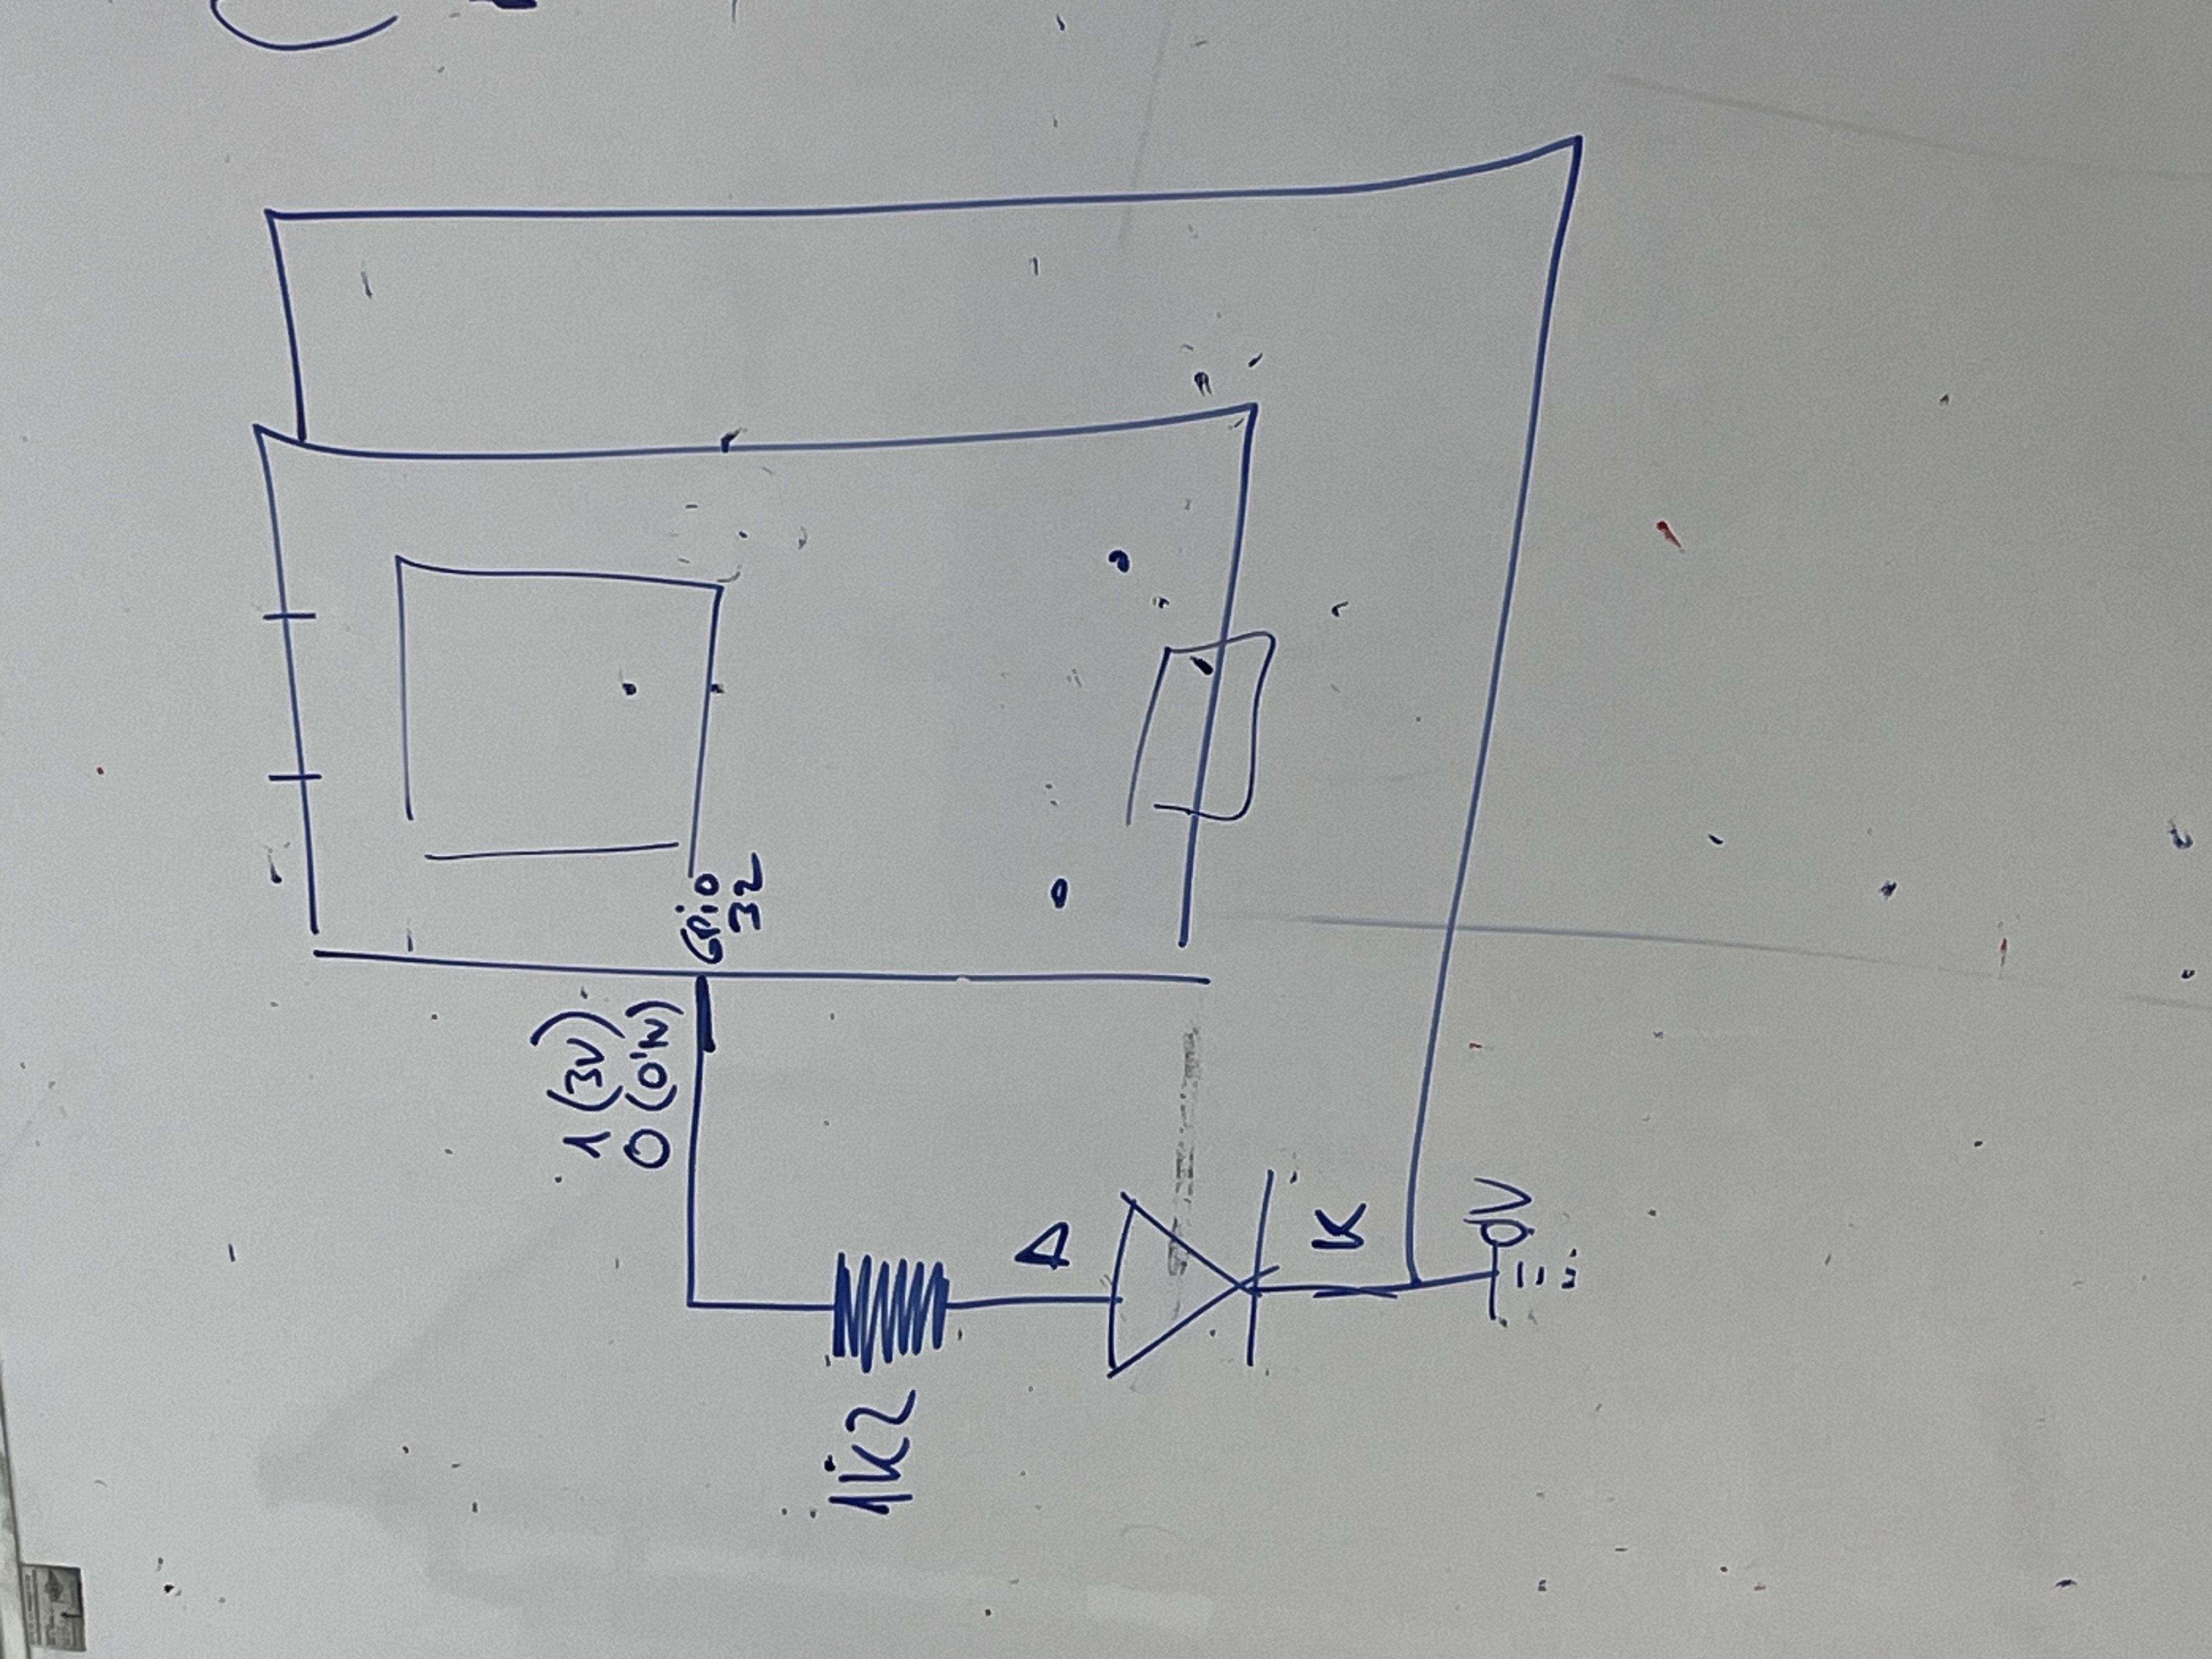 1 (3V)
0 (0'1V)
GPiO
32
1K2
A
K
0V